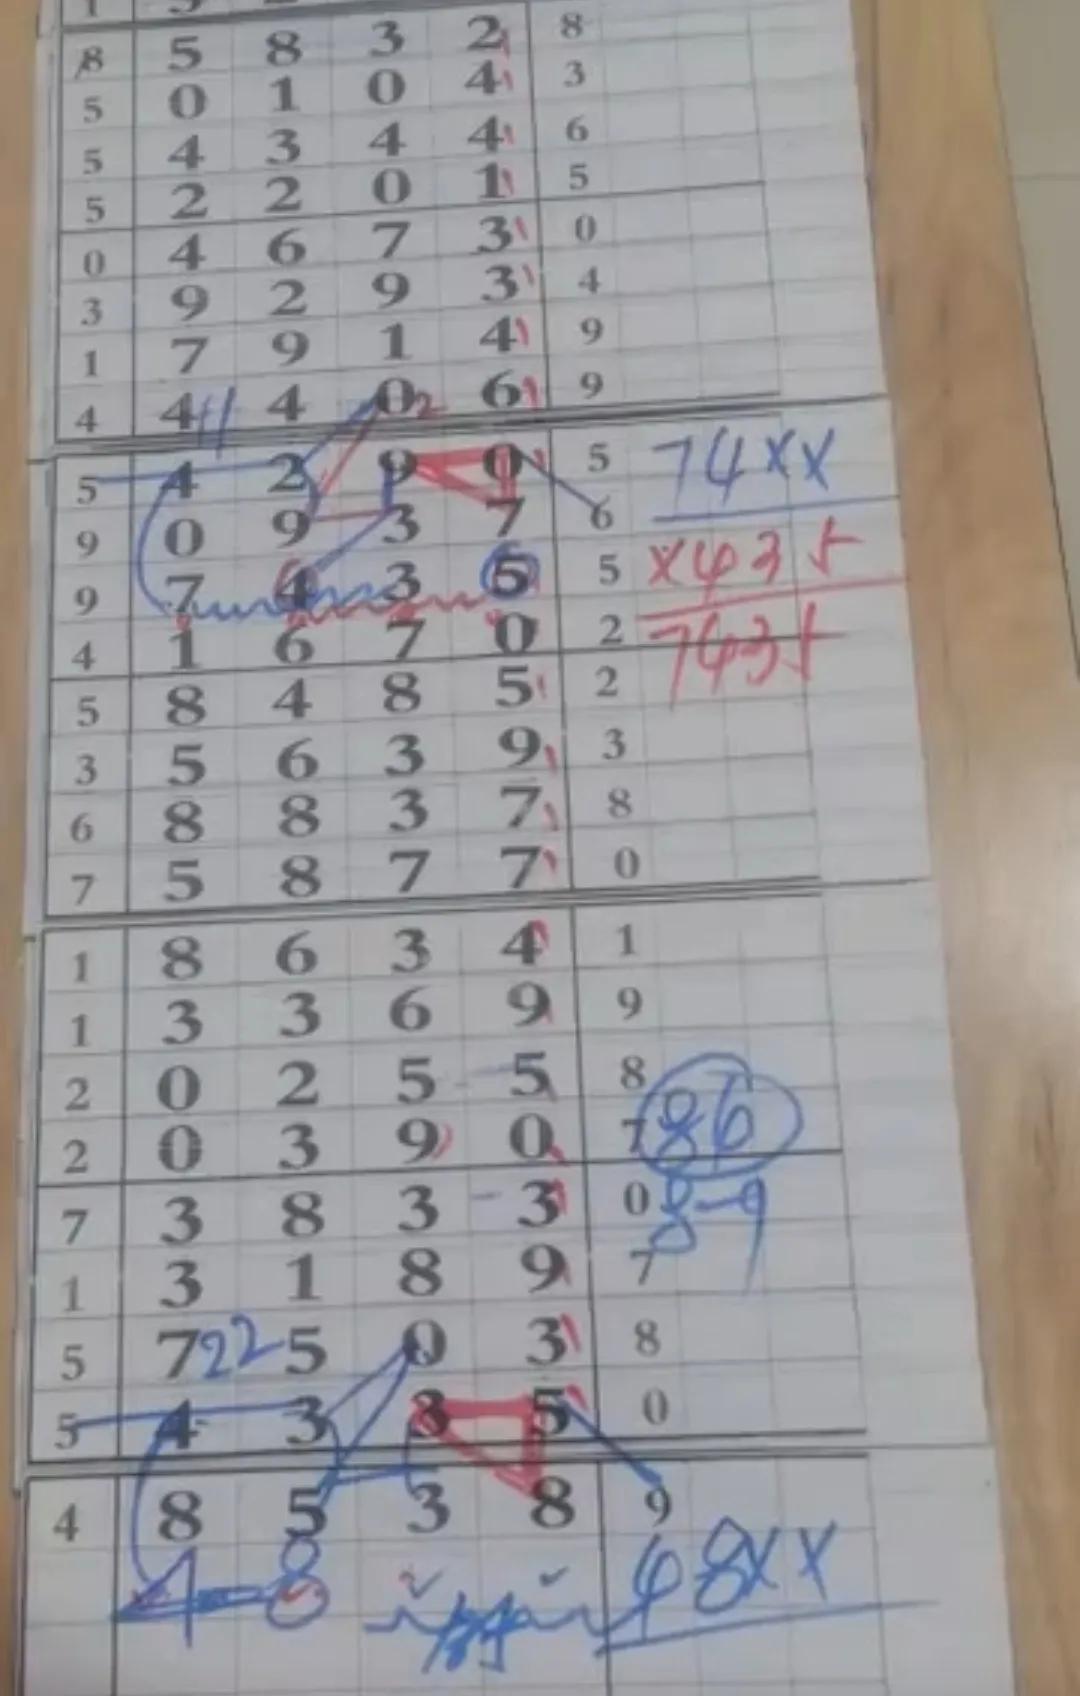 8 5 8 3 2 8
5 0 1 0 4 3
5 4 3 4 4 6
5 2 2 0 1 5
0 4 6 7 3 0
3 9 2 9 3 4
1 7 9 1 4 9
4 4 11 4 0 2 6 9
5 4 2 9 0 5 74xx
9 0 9 3 7 6
9 7 4 3 5 5 x435
4 1 6 7 0 2 7435
5 8 4 8 5 2
3 5 6 3 9 3
6 8 8 3 7 8
7 5 8 7 7 0
1 8 6 3 4 1
1 3 3 6 9 9
2 0 2 5 5 8
2 0 3 9 0 7 86
7 3 8 3 3 0 8-9
1 3 1 8 9 7
5 7 22 5 0 3 8
5 4 3 3 5 0
4 8 5 3 8 9
4 8 48xx